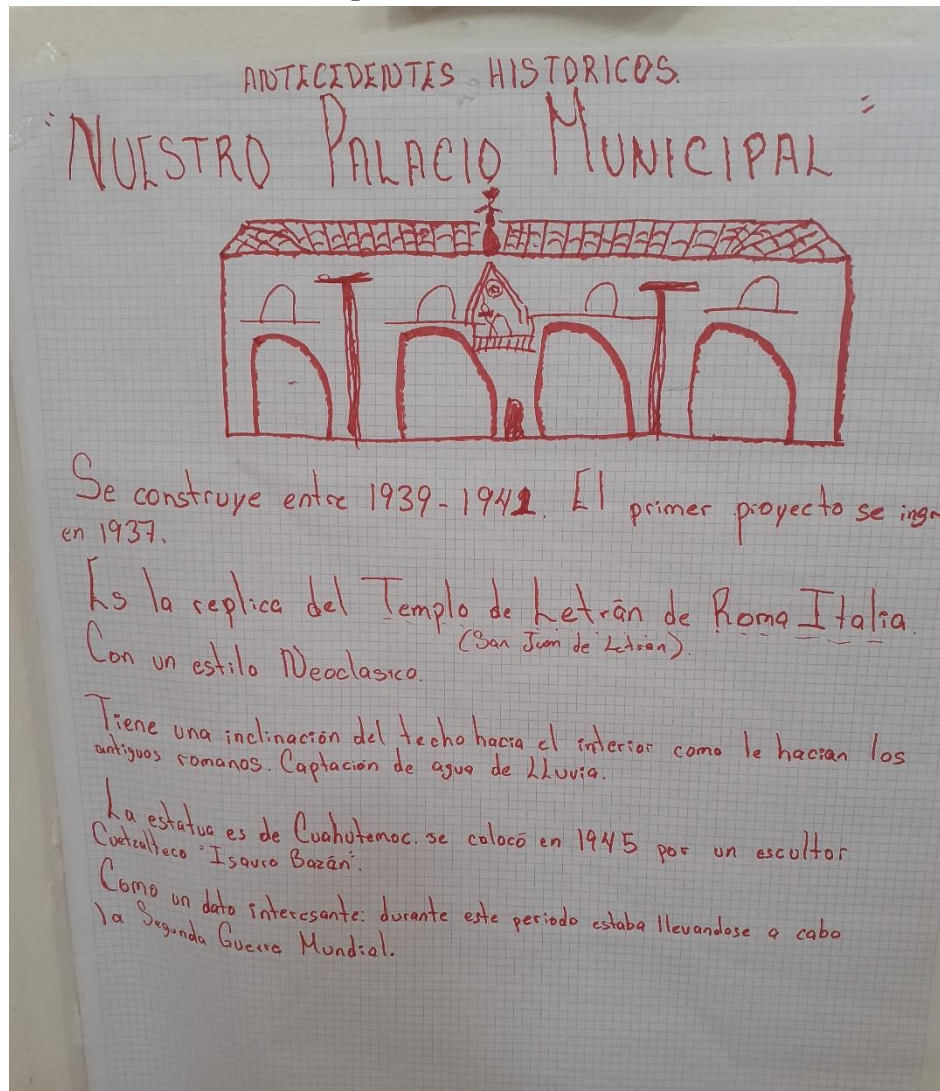 ANTECEDENTES HISTORICOS.
"NUESTRO PALACIO MUNICIPAL"
Se construye entre 1939-1941. El primer proyecto se
en 1937.
Es la replica del Templo de Letrán de Roma Italia.
(San Juan de Letran).
Con un estilo Neoclasico.
Tiene una inclinación del techo hacia el interior como le hacian los
antiguos romanos. Captación de agua de LLuvia.
La estatua es de Cuahutemoc. se colocó en 1945 por un escultor
Cuetzalteco "Isauro Bazán".
Como un dato interesante: durante este periodo estaba llevandose a cabo
la Segunda Guerra Mundial.